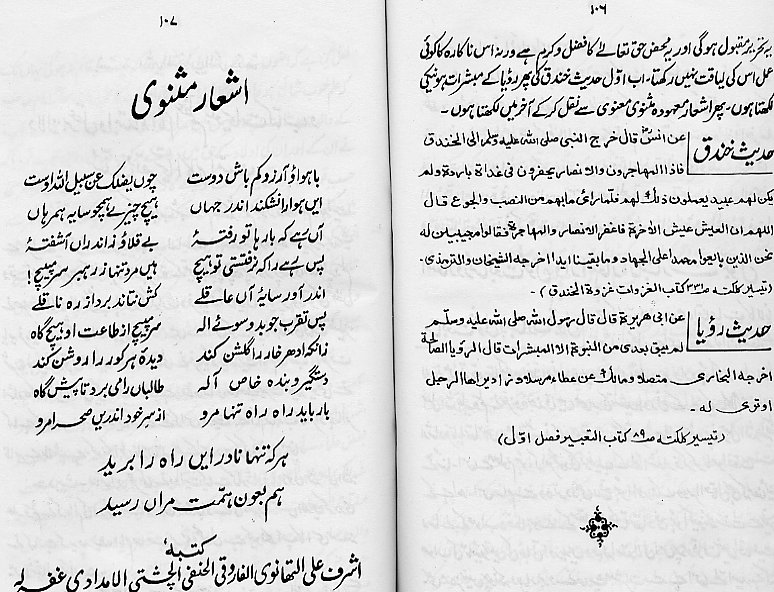 ۱۰۶
یہ تحریر مقبول ہوگی اور یہ محض حق تعالےٰ کا فضل و کرم ہے ورنہ اس ناکارہ کا کوئی
عمل اس کی لیاقت نہیں رکھتا۔ اب اوّل حدیث خندق کی پھر رؤیا کے مبشرات ہونیکی
لکھتا ہوں۔ پھر اشعار معہودہ مثنوی معنوی سے نقل کر کے آخر میں لکھتا ہوں۔
حدیث خندق
عن انسؓ قال خرج النبی صلی اللہ علیہ وسلم الی الخندق
فاذا المهاجرون والانصار یحفرون فی غداة باردة ولم
یکن لهم عبید یعملون ذلك لهم فلما رای ما بهم من النصب والجوع قال
اللهم ان العیش عیش الاخرة فاغفر الانصار والمهاجرة فقالوا مجیبین له
نحن الذین بایعوا محمدا علی الجهاد ما بقینا ابدا اخرجه الشیخان والترمذی۔
(تیسیر کلکتہ ص۳۳۱ کتاب الغزوات غزوة الخندق)۔
حدیث رؤیا
عن ابی هریرة قال قال رسول اللہ صلی اللہ علیہ وسلم
لم یبق بعدی من النبوة الا المبشرات قال الرؤیا الصالحة
اخرجه البخاری متصلا ومالك عن عطاء مرسلا وزاد یراها الرجل
او تری له۔
(تیسیر کلکتہ ص۸۹ کتاب التعبیر فصل اوّل)
۱۰۷
اشعار مثنوی
باہوا و آرزو کم باش دوست چوں یضلک عن سبیل اللہ اوست
ایں ہوا را نشکند اندر جہاں ہیچ چیزے ہمچو سایہ ہمرہاں
آں رہے کہ بارہا تو رفتۂ بے قلاؤز اندراں آشفتۂ
پس رہے را کہ نرفتستی تو ہیچ ہیں مرو تنہا ز رہبر سر مپیچ
اندر آ در سایۂ آں عاقلے کش نتاند برد از رہ ناقلے
پس تقرب جو بدو سوئے الہ سر مپیچ از طاعت او ہیچ گاہ
زانکہ او ہر خار را گلشن کند دیدۂ ہر کور را روشن کند
دستگیر و بندہ خاص الہ طالباں را می برد تا پیش گاہ
یار باید راہ را تنہا مرو از سر خود اندریں صحرا مرو
ہر کہ تنہا نادر ایں راہ را برید
ہم بعون ہمت مراں رسید
کتبہ
اشرف علی التھانوی الفاروقی الحنفی الچشتی الامدادی غفر لہ